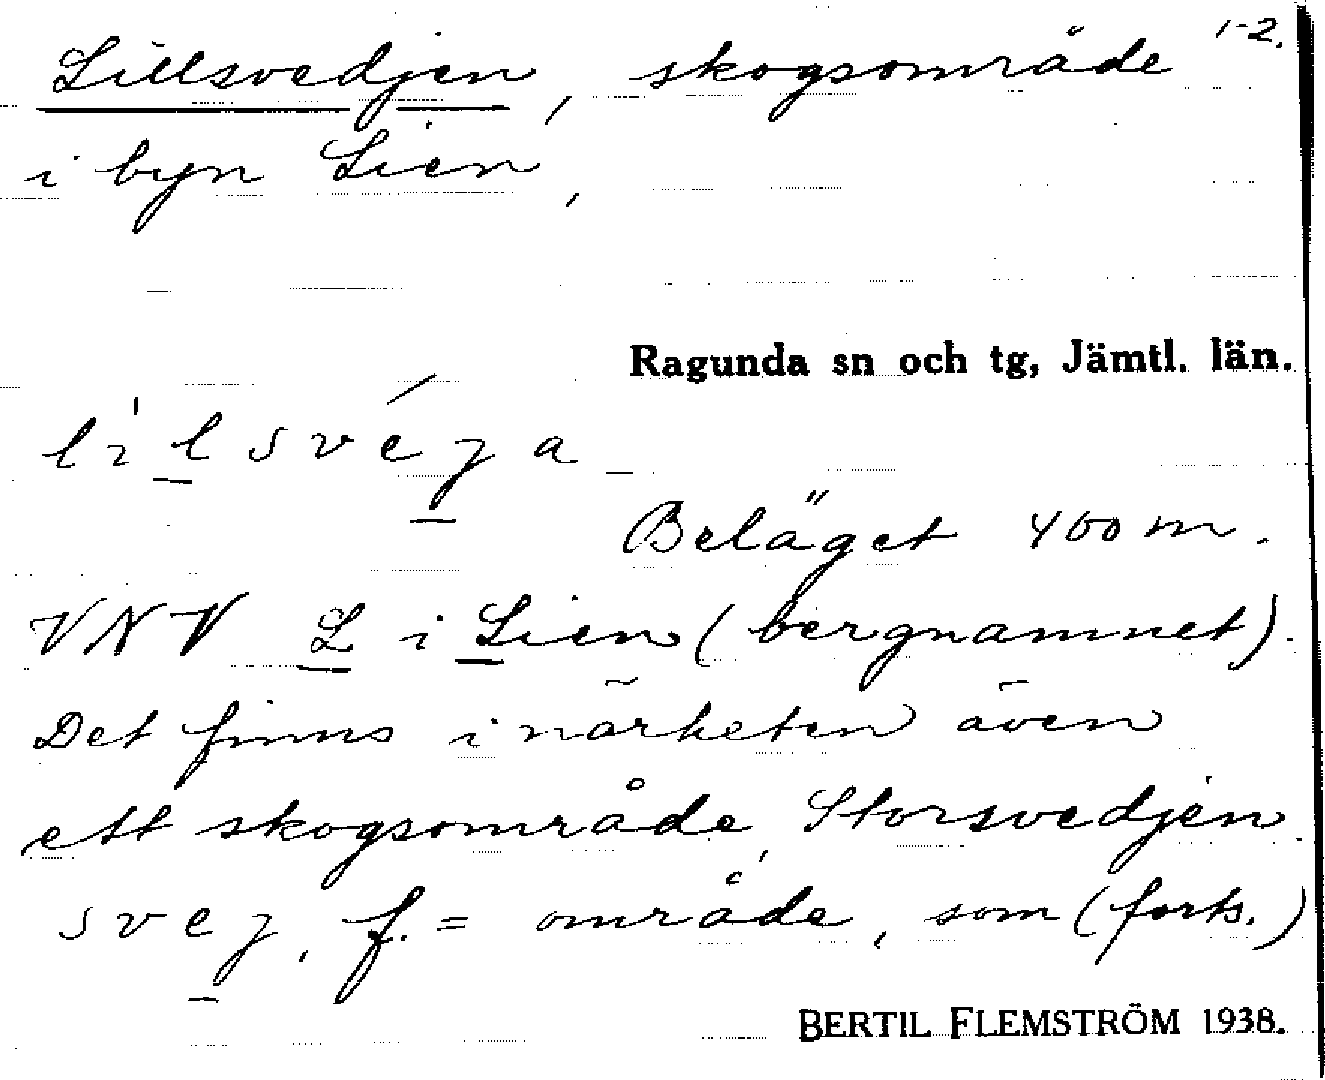 Lillsvedjen, skogsområde 1-2.
i byn Lien,
Ragunda sn och tg, Jämtl. län.
Beläget 400 m.
VNV L i Lien (bergnamnet).
Det finns i närheten även
ett skogsområde, Storsvedjen
svej, f. = område, som (forts.)
BERTIL FLEMSTRÖM 1938.